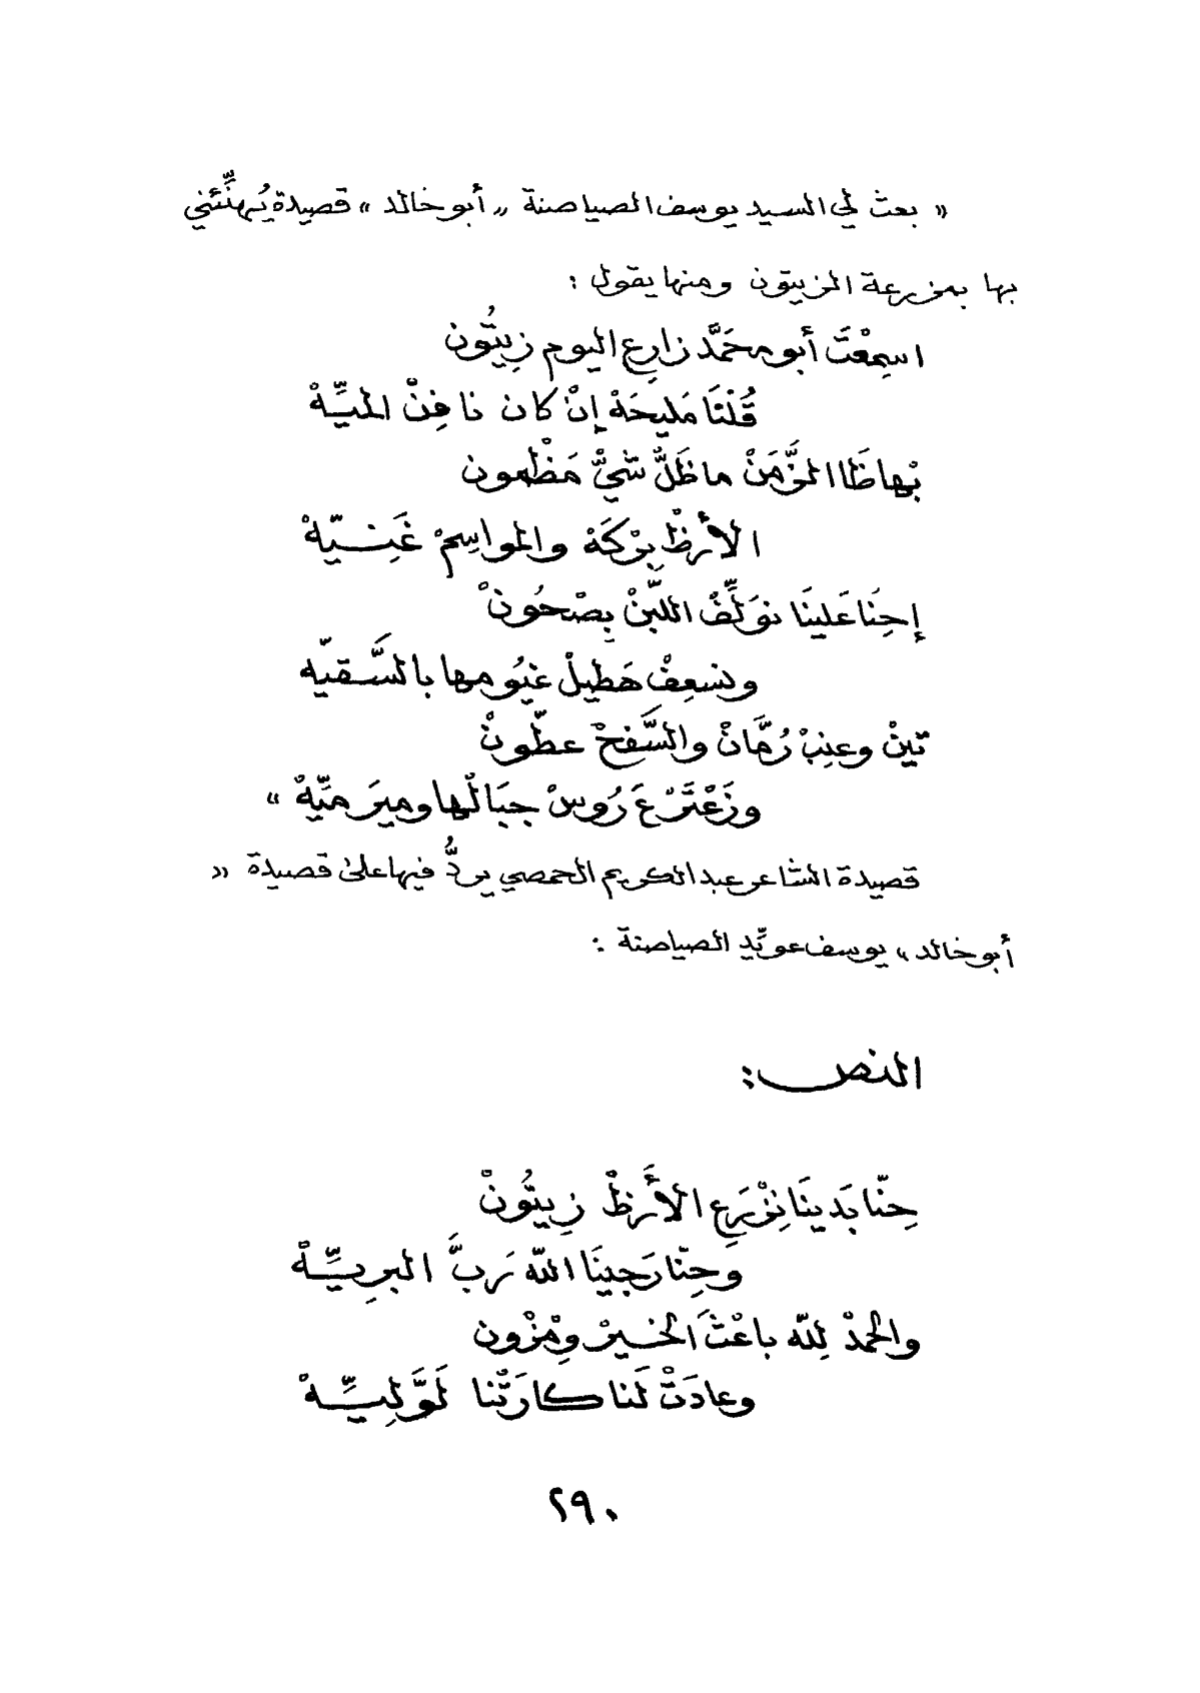 « بعث لي السيد يوسف الصياصنة „ أبو خالد » قصيدة يُهنِّئني
بها بمزرعة الزيتون ومنها يقول :
اسمِعْتَ أبو محَمَّد زارِع اليوم زِيتُون
قُلْنَا مَليحَهْ إنْ كان نا فِنْ الميِّهْ
بْهاظَا الزَّمَنْ ماظَلْ شيّْ مَظْمون
الأرظْ بِرْكَهْ والمواسِمْ غَنِيّهْ
إحِنَا عَلينَا نوَلِّفْ اللبَّنْ بِصْحُونْ
ونسعِفْ هَطيلْ غيُومها بالسَّقيّه
تينْ وعِنِبْ رُمَّانْ والسَّفحْ عطّونْ
وزَعْتَرْ عَ رُوسْ جبَالْها وميرَميِّهْ »
قصيدة الشاعر عبدالكريم الحمصي يردُّ فيها على قصيدة «
أبو خالد » يوسف عويِّد الصياصنة :
النص :
حِنّا بَدينَا نِزْرَعِ الأَرظْ زِيتُونْ
وَحِنّا رَجينَا اللّه رَبَّ البرِيِّهْ
والحمدْ لِلّه باعْثَ الخيرْ وِمْزون
وعادَتْ لَنا كارَتْنا لَوَّلِيِّهْ
٢٩٠